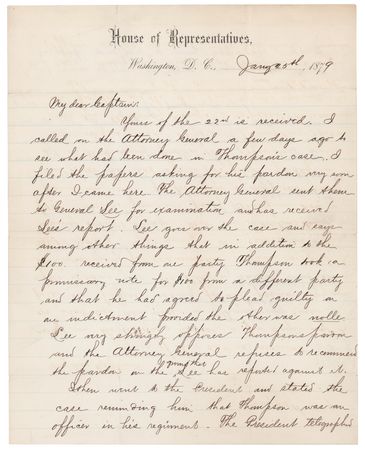 House of Representatives,
Washington, D. C., Jany 25th, 1879
My dear Captain:
Yours of the 22nd is received. I
called on the Attorney General a few days ago to
see what had been done in Thompson's case. I
filed the papers asking for his pardon very soon
after I came here. The Attorney General sent them
to General Lee for examination and has received
Lees report. Lee goes over the case and says
among other things that in addition to the
$100. received from one party Thompson took a
promissory note for $100 from a different party
and that he had agreed to plead guilty on
one indictment provided the other was nolle
Lee very strongly opposes Thompsons pardon
and the Attorney General refuses to recommend
the pardon on the ground that Lee has reported against it.
I then went to the President and stated the
case reminding him that Thompson was an
officer in his regiment. The President telegraphed